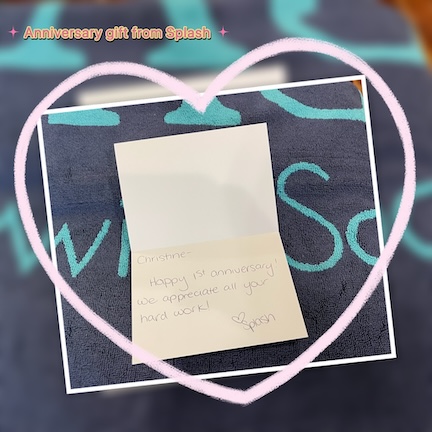 Anniversary gift from Splash
Christine-
Happy 1st anniversary!
we appreciate all your
hard work!
♡Splash